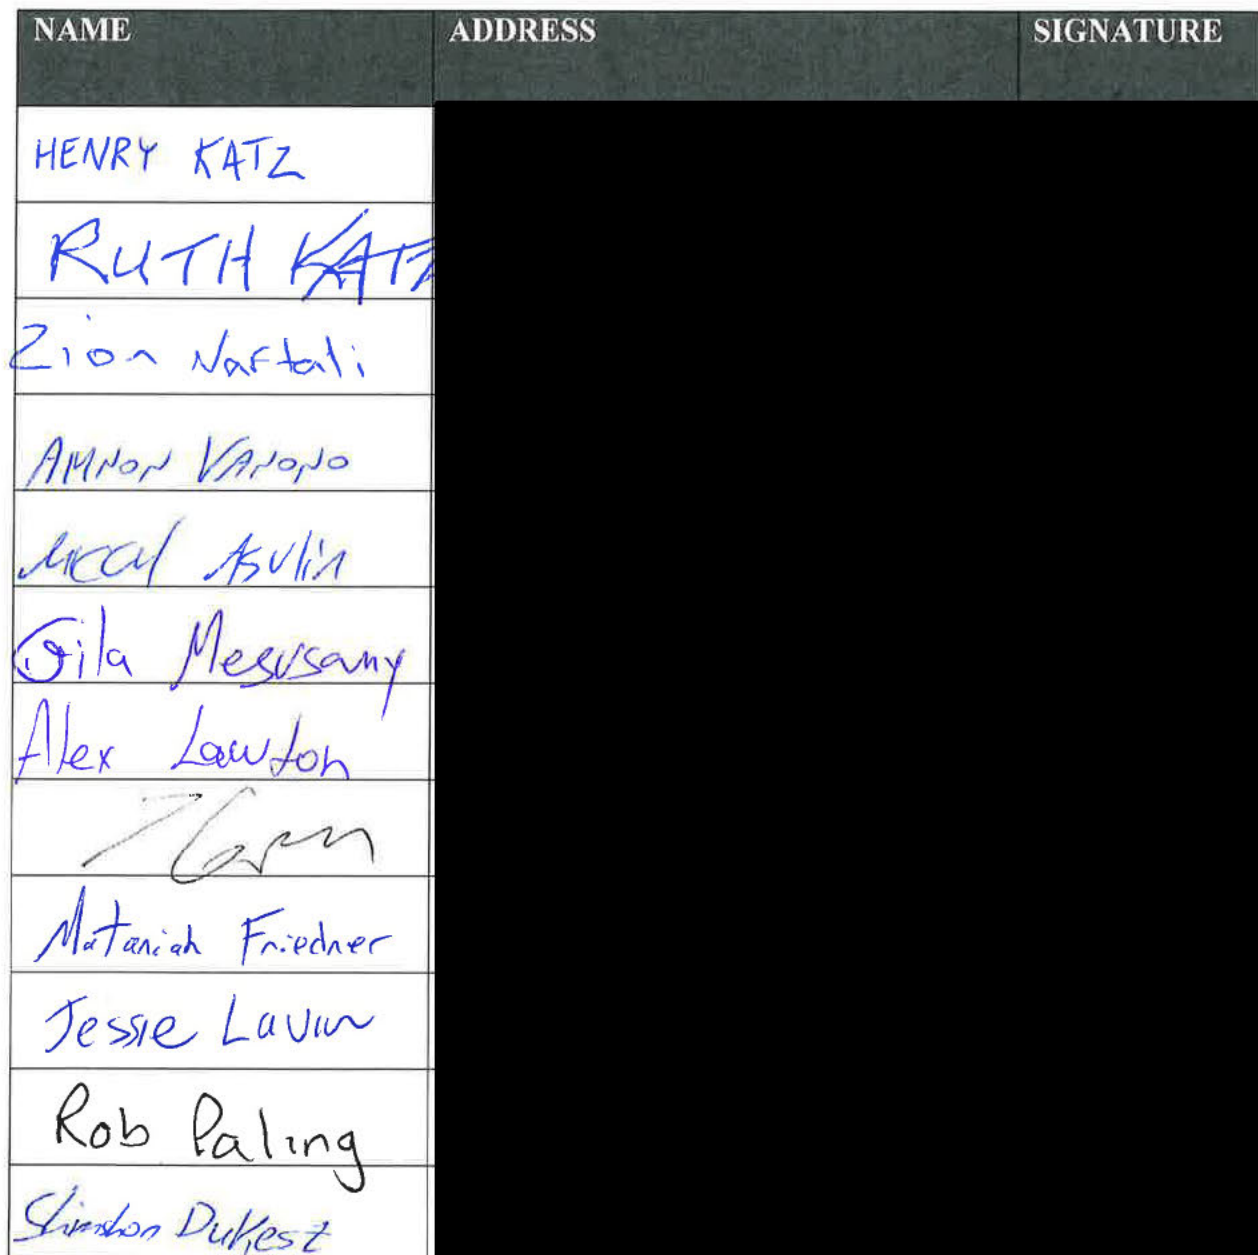 NAME ADDRESS SIGNATURE
HENRY KATZ
RUTH KATZ
Zion Naftali
AMNON VANONO
Asulin
Gila
Alex Lawton
Mataniah Friedner
Jessie Lavin
Rob Paling
Shimshon